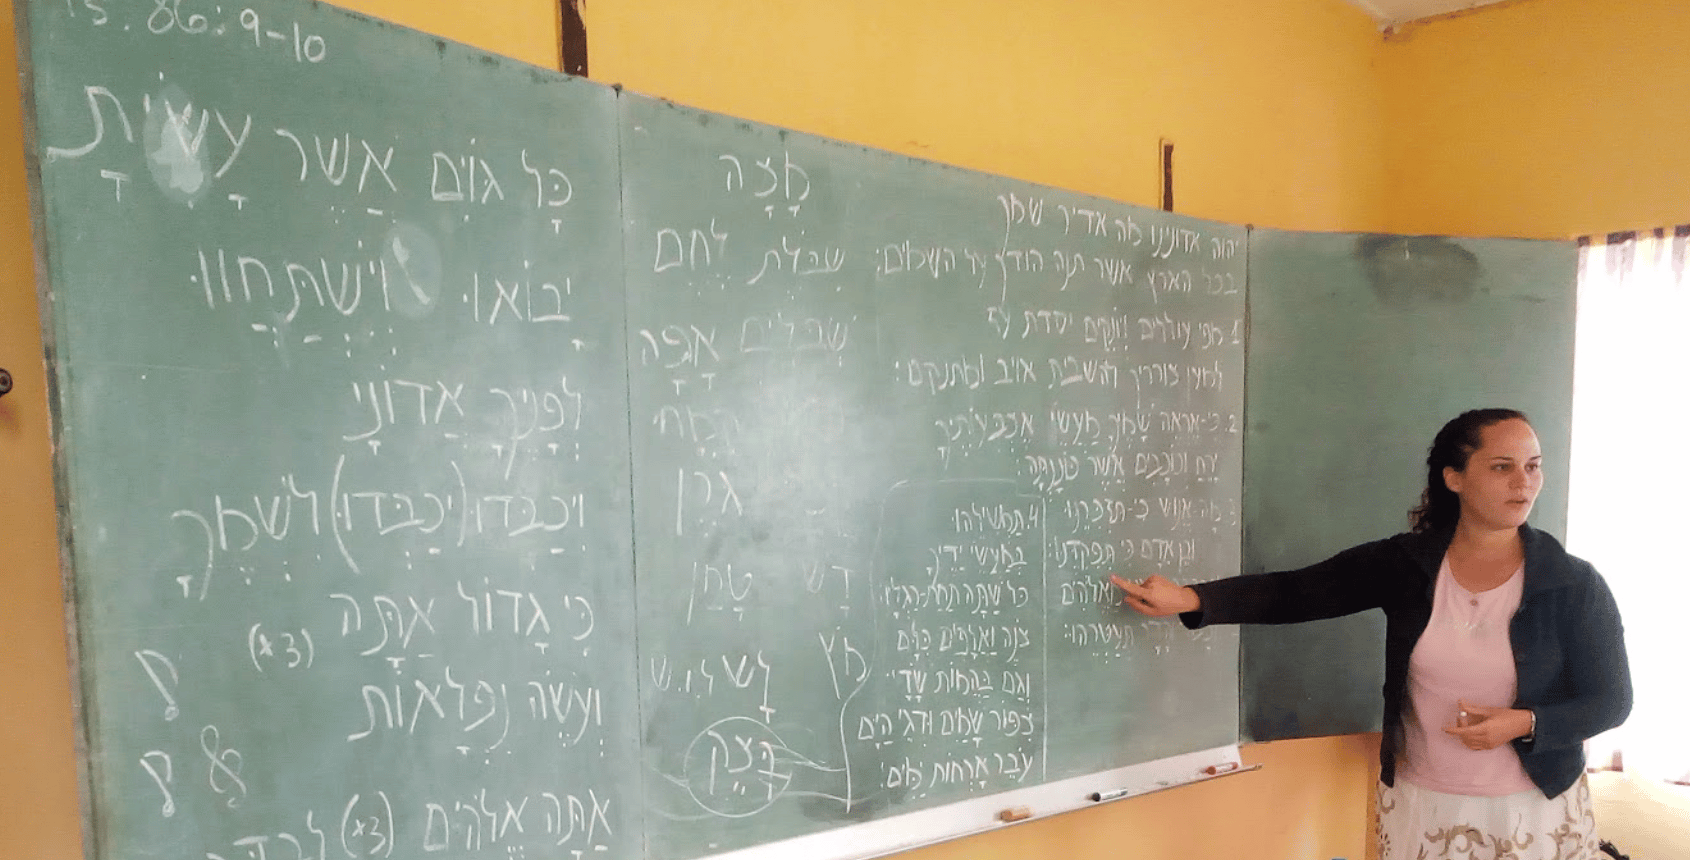 86:9-10
כָּל גּוֹיִם אֲשֶׁר עָשִׂיתָ
יָבוֹאוּ וְיִשְׁתַּחֲווּ
לְפָנֶיךָ אֲדוֹנָי
וִיכַבְּדוּ (יְכַבְּדוּ) לִשְׁמֶךָ
כִּי גָדוֹל אַתָּה (×3)
וְעֹשֵׂה נִפְלָאוֹת
אַתָּה אֱלֹהִים (×3)
מָצָה
שִׁבֹּלֶת לֶחֶם
שִׁבֳּלִים אָפָה
גֹּרֶן
דָּשׁ טָחַן
מֹץ לָשׁ
בָּצֵק
יהוה אדונינו מה אדיר שמך
בכל הארץ אשר תנה הודך על השמים:
1. מפי עוללים וְיוֹנְקִים יסדת עז
למען צורריך להשבית אויב ומתנקם:
2. כי-אראה שָׁמֶיךָ מַעֲשֵׂי אֶצְבְּעֹתֶיךָ
יָרֵחַ וְכוֹכָבִים אֲשֶׁר כּוֹנָנְתָּה:
3. מָה-אֱנוֹשׁ כִּי-תִזְכְּרֶנּוּ
וּבֶן אָדָם כִּי תִפְקְדֶנּוּ:
מֵאֱלֹהִים
תְּעַטְּרֵהוּ:
4. תַּמְשִׁילֵהוּ
בְּמַעֲשֵׂי יָדֶיךָ
כֹּל שַׁתָּה תַחַת-רַגְלָיו:
צֹנֶה וַאֲלָפִים כֻּלָּם
וְגַם בַּהֲמוֹת שָׂדָי:
צִפּוֹר שָׁמַיִם וּדְגֵי הַיָּם
עֹבֵר אָרְחוֹת יַמִּים: